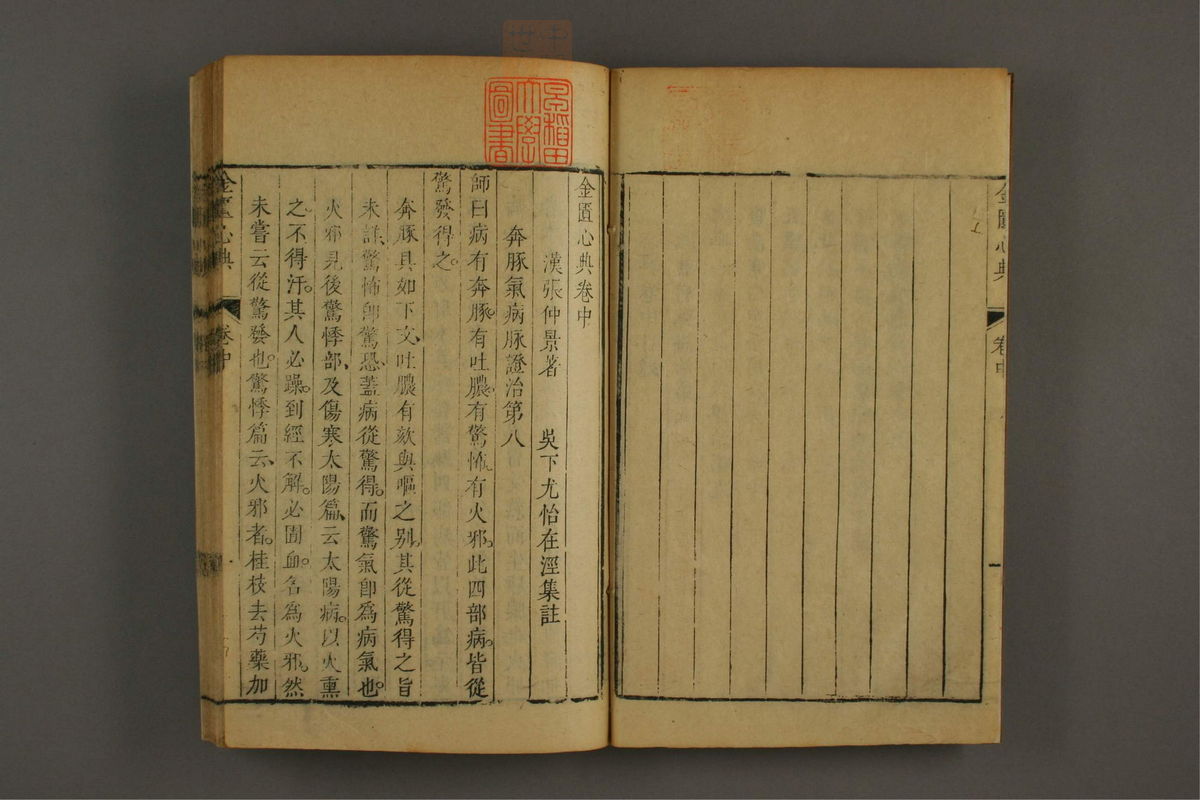 金匱心典 卷中
早稻田大學圖書
金匱心典卷中
漢張仲景著 吳下尤怡在涇集註
奔豚氣病脉證治第八
師曰病有奔豚。有吐膿。有驚怖。有火邪。此四部病。皆從
驚發得之。
奔豚具如下文、吐膿有欬與嘔之别。其從驚得之旨
未詳、驚怖卽驚恐、葢病從驚得。而驚氣卽爲病氣也。
火邪見後驚悸部、及傷寒太陽篇、云太陽病。以火熏
之。不得汗。其人必躁。到經不解。必圊血。名爲火邪。然
未嘗云從驚發也。驚悸篇云、火邪者。桂枝去芍藥加
金匱心典 卷中